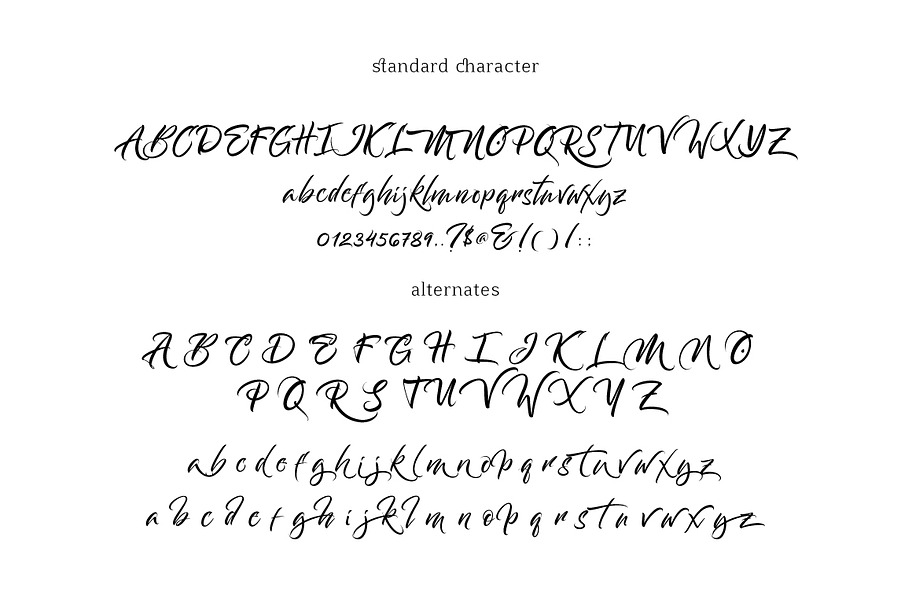 standard character
ABCDEFGHIJKLMNOPQRSTUVWXYZ
abcdefghijklmnopqrstuvwxyz
0123456789..?$@&!()/::
alternates
A B C D E F G H I J K L M N O
P Q R S T U V W X Y Z
a b c d e f g h i j k l m n o p q r s t u v w x y z
a b c d e f g h i j k l m n o p q r s t u v w x y z